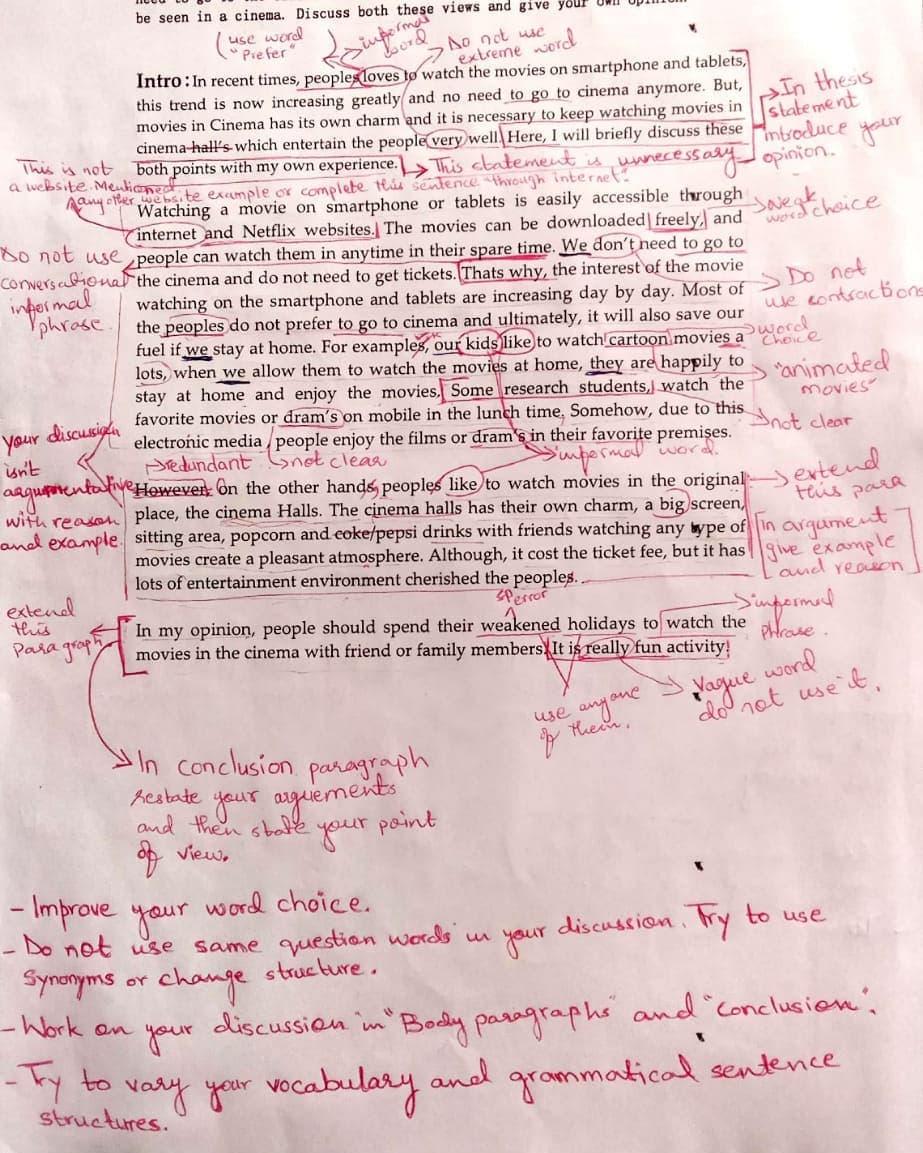 be seen in a cinema. Discuss both these views and give your own opinion.
(use word
"Prefer"
informal
word
Do not use
extreme word
Intro: In recent times, peoples loves to watch the movies on smartphone and tablets,
this trend is now increasing greatly and no need to go to cinema anymore. But,
movies in Cinema has its own charm and it is necessary to keep watching movies in
cinema hall's which entertain the people very well. Here, I will briefly discuss these
both points with my own experience.
In thesis
statement
introduce your
opinion.
This statement is unnecessary
This is not
a website. Mentioned
any other website example or complete this sentence "through internet".
Watching a movie on smartphone or tablets is easily accessible through
internet and Netflix websites. The movies can be downloaded freely, and
people can watch them in anytime in their spare time. We don't need to go to
the cinema and do not need to get tickets. Thats why, the interest of the movie
watching on the smartphone and tablets are increasing day by day. Most of
the peoples do not prefer to go to cinema and ultimately, it will also save our
fuel if we stay at home. For examples, our kids like to watch cartoon movies a
lots, when we allow them to watch the movies at home, they are happily to
stay at home and enjoy the movies. Some research students, watch the
favorite movies or dram's on mobile in the lunch time. Somehow, due to this
electronic media people enjoy the films or dram's in their favorite premises.
weak
word choice
Do not use
conversational
informal
phrase.
Do not
use contractions
word
choice
"animated
movies"
not clear
redundant
not clear
informal word.
your discussion
isn't
argumentative
with reason
and example.
However, On the other hands, peoples like to watch movies in the original
place, the cinema Halls. The cinema halls has their own charm, a big screen,
sitting area, popcorn and coke/pepsi drinks with friends watching any type of
movies create a pleasant atmosphere. Although, it cost the ticket fee, but it has
lots of entertainment environment cherished the peoples.
extend
this para
in argument
give example
and reason
sp error
extend
this
paragraph
In my opinion, people should spend their weakened holidays to watch the
movies in the cinema with friend or family members. It is really fun activity!
informal
phrase.
use anyone
of them.
Vague word
do not use it.
In conclusion paragraph
restate your arguements
and then state your point
of view.
- Improve your word choice.
- Do not use same question words in your discussion. Try to use
synonyms or change structure.
- Work on your discussion in "Body paragraphs" and "conclusion".
- Try to vary your vocabulary and grammatical sentence
structures.